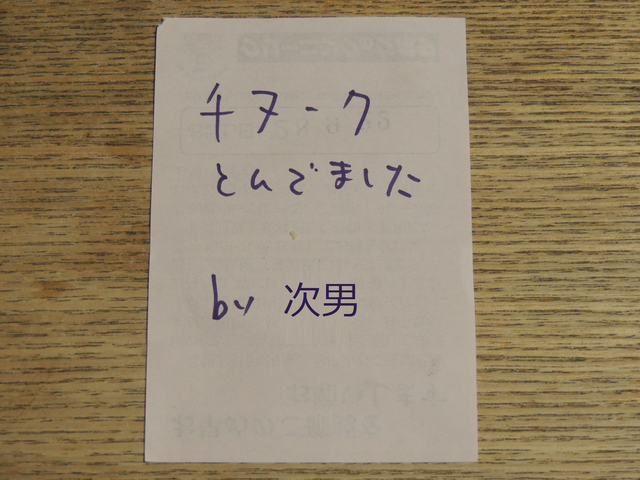 チヌーク
とんでました
by 次男